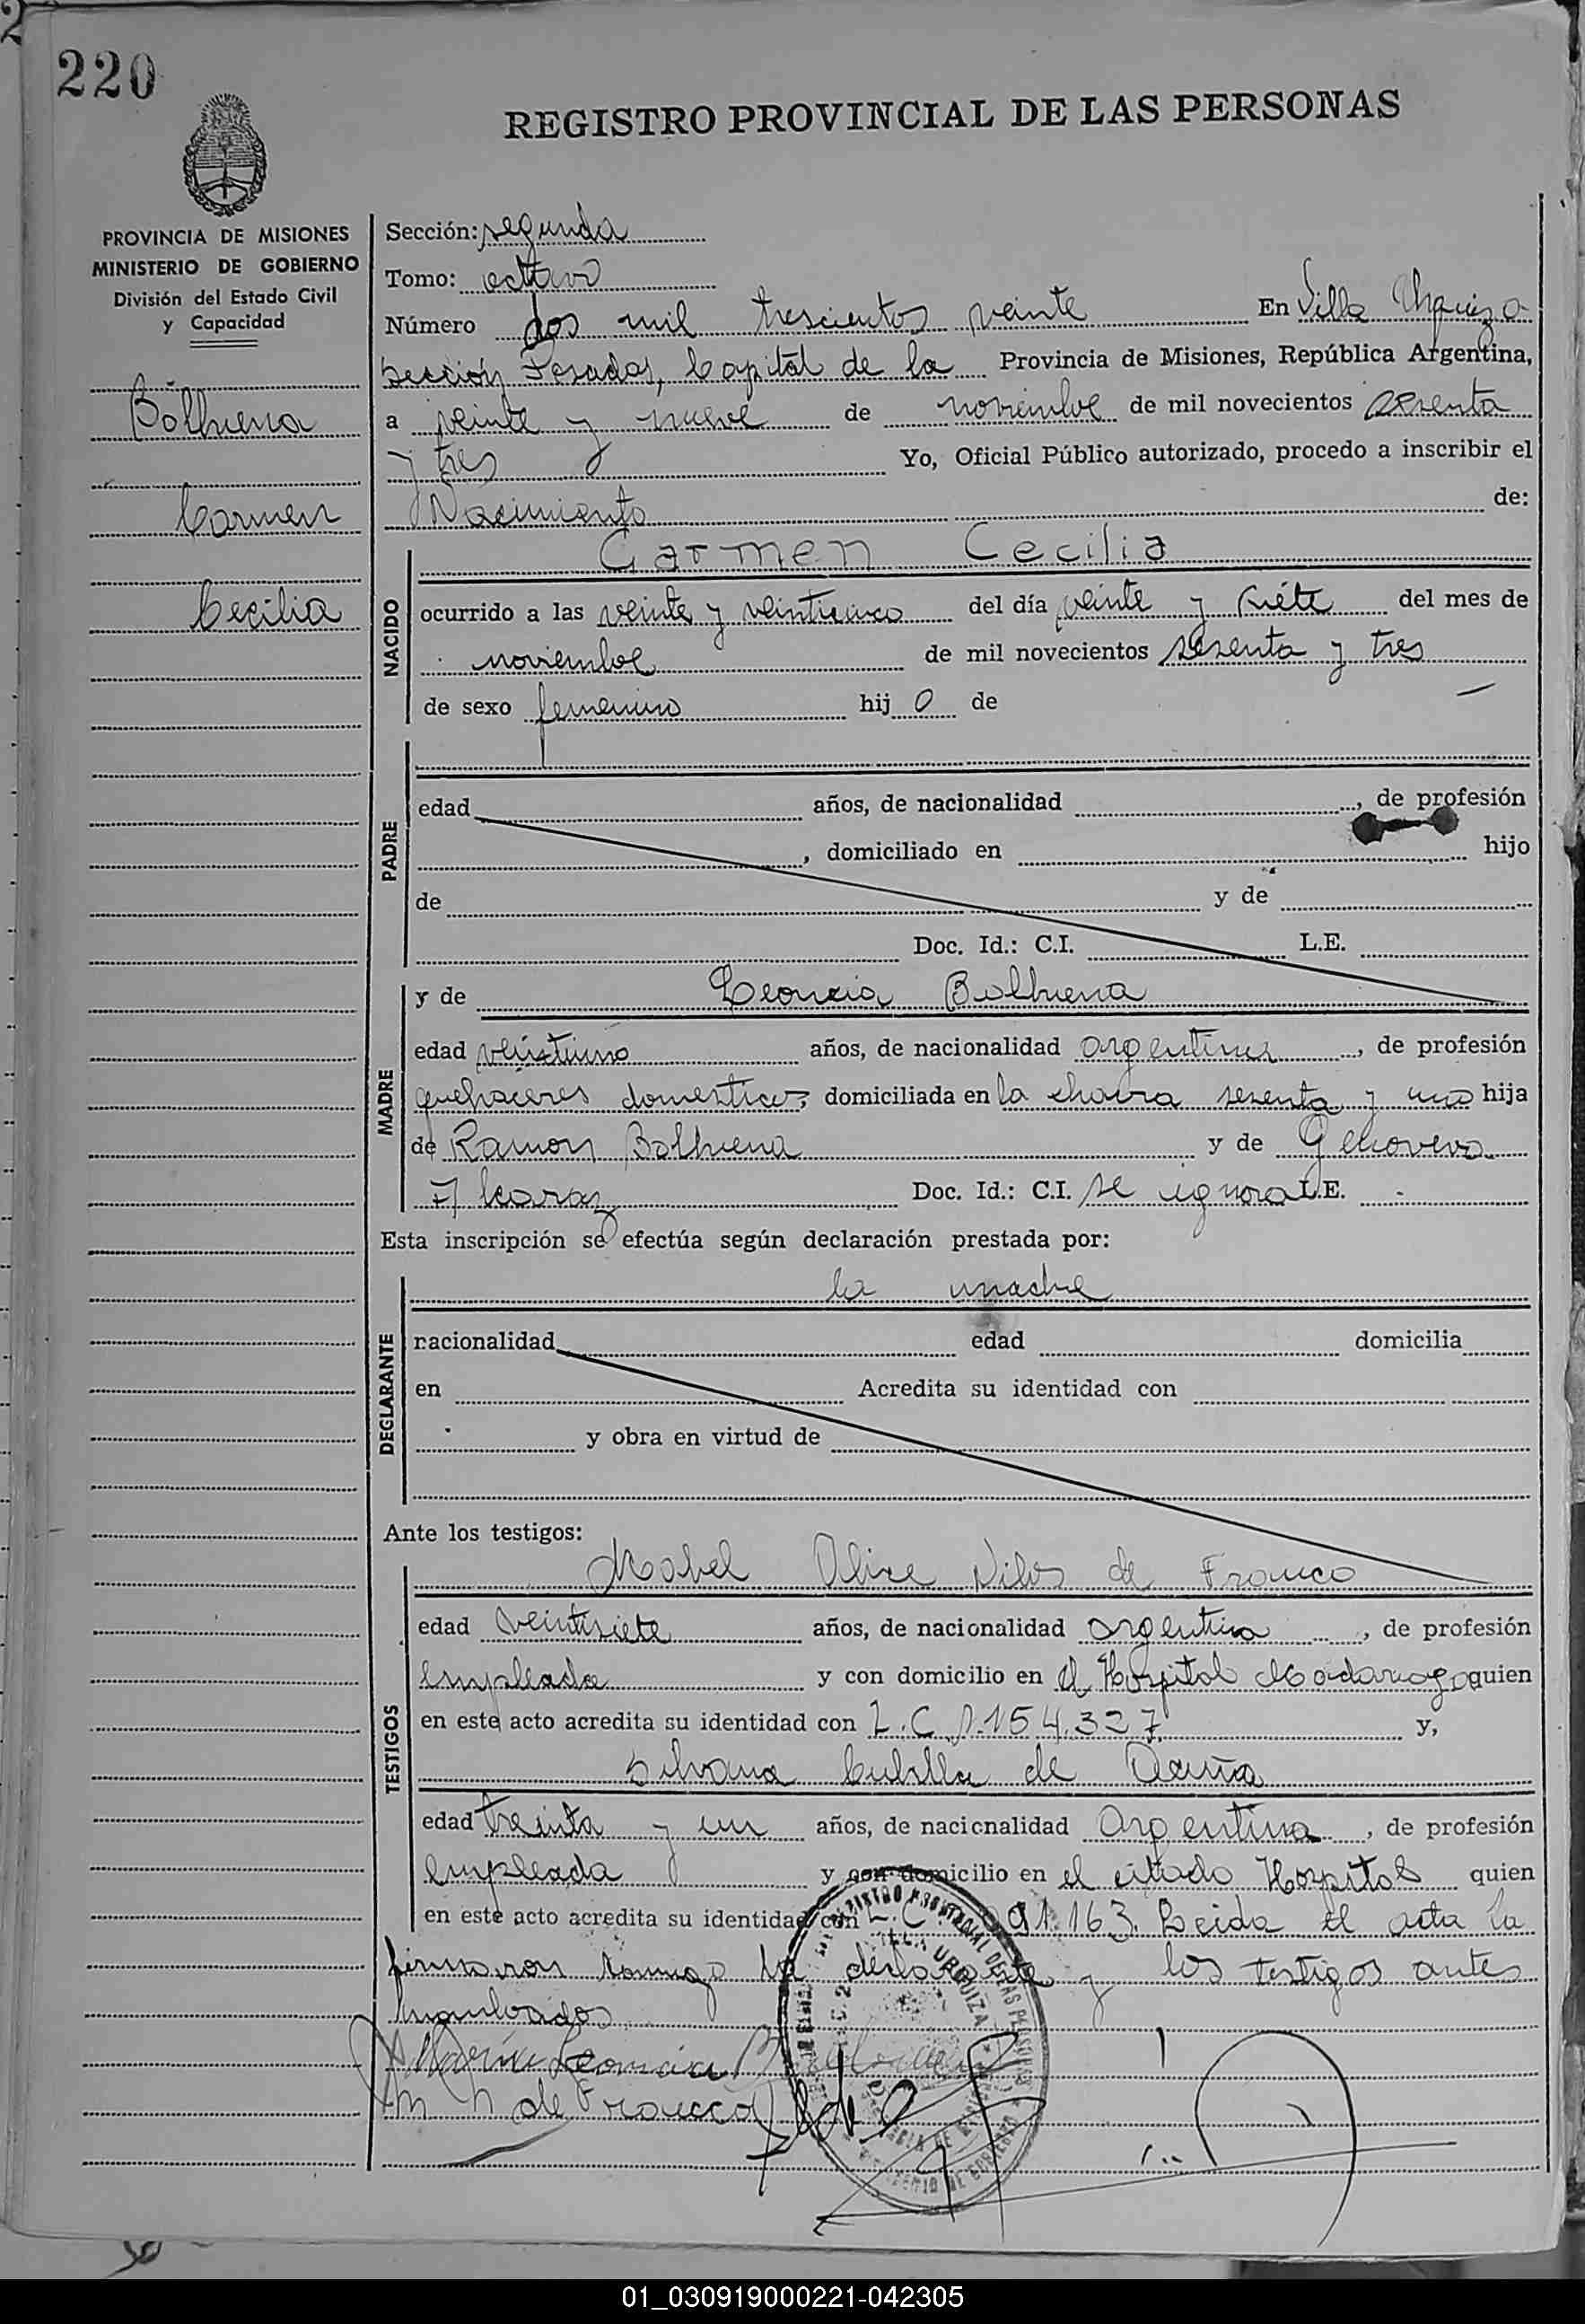 220
REGISTRO PROVINCIAL DE LAS PERSONAS
PROVINCIA DE MISIONES
MINISTERIO DE GOBIERNO
División del Estado Civil
y Capacidad
Bolhuena
Carmen
Cecilia
Sección: segunda
Tomo: octavo
Número dos mil trescientos veinte En Villa Urquiza
Sección Posadas, Capital de la Provincia de Misiones, República Argentina,
a veinte y nueve de noviembre de mil novecientos sesenta
y tres Yo, Oficial Público autorizado, procedo a inscribir el
Nacimiento de:
Carmen Cecilia
NACIDO
ocurrido a las veinte y veinticinco del día veinte y siete del mes de
noviembre de mil novecientos sesenta y tres
de sexo femenino hij o de
PADRE
edad años, de nacionalidad , de profesión
, domiciliado en hijo
de y de
Doc. Id.: C.I. L.E.
MADRE
y de Leoncia Bolhuena
edad veintiuno años, de nacionalidad argentina , de profesión
quehaceres domesticos, domiciliada en la chacra sesenta y uno hija
de Ramon Bolhuena y de Genoveva
Alcaraz Doc. Id.: C.I. se ignora L.E.
Esta inscripción se efectúa según declaración prestada por:
la madre
DECLARANTE
nacionalidad edad domicilia
en Acredita su identidad con
y obra en virtud de
Ante los testigos:
TESTIGOS
Mabel Alice de Franco
edad veintisiete años, de nacionalidad argentina , de profesión
empleada y con domicilio en el Hospital Madariaga quien
en este acto acredita su identidad con L.C 154.327 y,
Silvana Cubilla de Acuña
edad treinta y un años, de nacionalidad Argentina , de profesión
empleada y con domicilio en el citado Hospital quien
en este acto acredita su identidad con L.C 91.163. Leida el acta la
firmaron conmigo la declarante y los testigos antes
nombrados
María Leoncia
de Franco
01_030919000221-042305